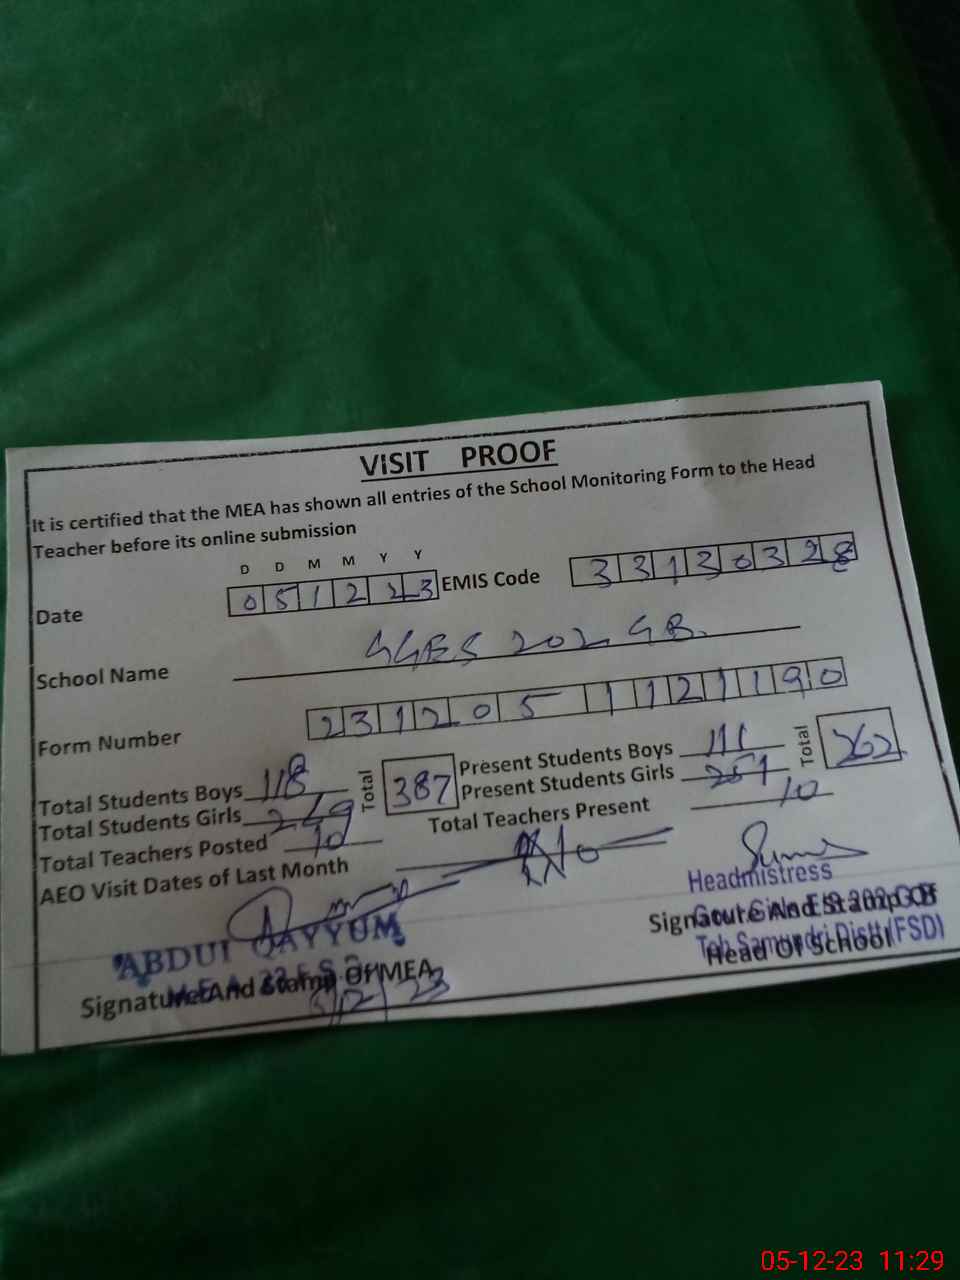 VISIT PROOF
It is certified that the MEA has shown all entries of the School Monitoring Form to the Head
Teacher before its online submission
D D M M Y Y
Date 05 12 23 EMIS Code 33130328
School Name GGES 202 GB.
Form Number 23120511121190
Total Students Boys 118 Total 387 Present Students Boys 111 Total 362
Total Students Girls 269 Present Students Girls 251
Total Teachers Posted 10 Total Teachers Present 10
AEO Visit Dates of Last Month
Headmistress
Govt Girls E/S 202 GB
Teh Samundri Distt (FSD)
Signature And Stamp Of
Head Of School
ABDUL QAYYUM
Signature And Stamp Of MEA
5/12/23
05-12-23 11:29